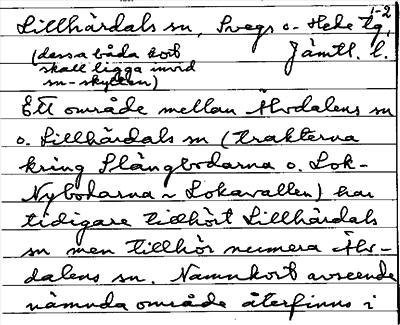 1-2
Lillhärdals sn, Svegs o. Hede tg,
(dessa båda kort Jämtl. l.
skall ligga invid
sn-skylten)
Ett område mellan Älvdalens sn
o. Lillhärdals sn (trakterna
kring Slängbodarna o. Lok-
Nybodarna i Lokavallen) har
tidigare tillhört Lillhärdals
sn men tillhör numera Älv-
dalens sn. Namnkort avseende
nämnda område återfinns i